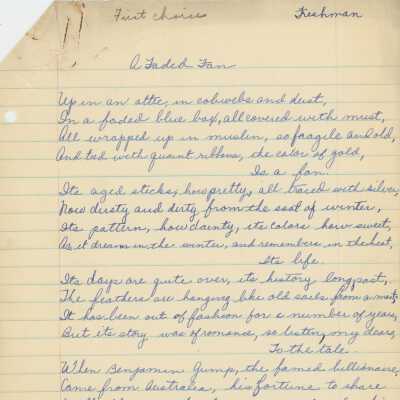 First choice Freshman
A Faded Fan
Up in an attic, in cobwebs and dust,
In a faded blue box, all covered with must,
All wrapped up in muslin, so fragile and old,
And tied with quaint ribbons, the color of gold,
Is a fan.
Its aged sticks, how pretty, all traced with silver,
Now dusty and dirty from the soot of winter,
Its pattern, how dainty, its colors how sweet,
As it dreams in the winter, and remembers in the heat,
Its life.
Its days are quite over, its history long past,
The feathers are hanging like old sails from a mast;
It has been out of fashion for a number of years,
But its story was of romance, so listen, my dears,
To the tale.
When Benjamin Gump, the famed billionaire,
Came from Australia, his fortune to share